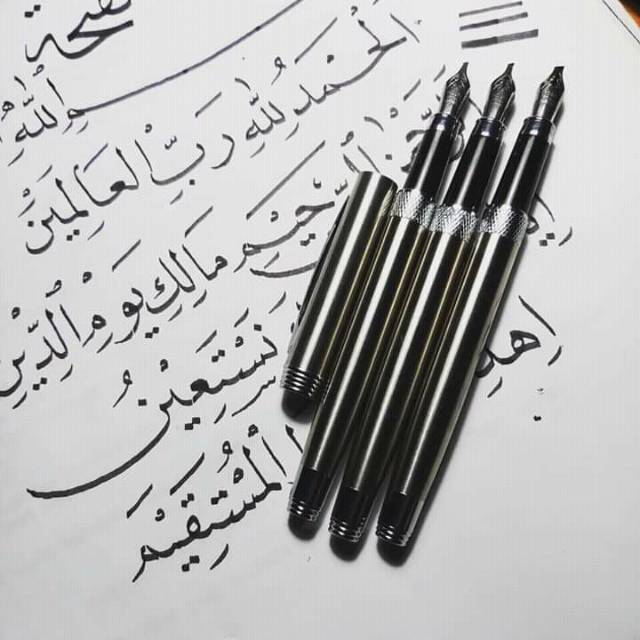 اللهِ
الْحَمْدُ لِلّٰهِ رَبِّ الْعَالَمِيْنَ
الرَّحِيْمِ مَالِكِ يَوْمِ الدِّيْنِ
نَسْتَعِيْنُ
الْمُسْتَقِيْمَ